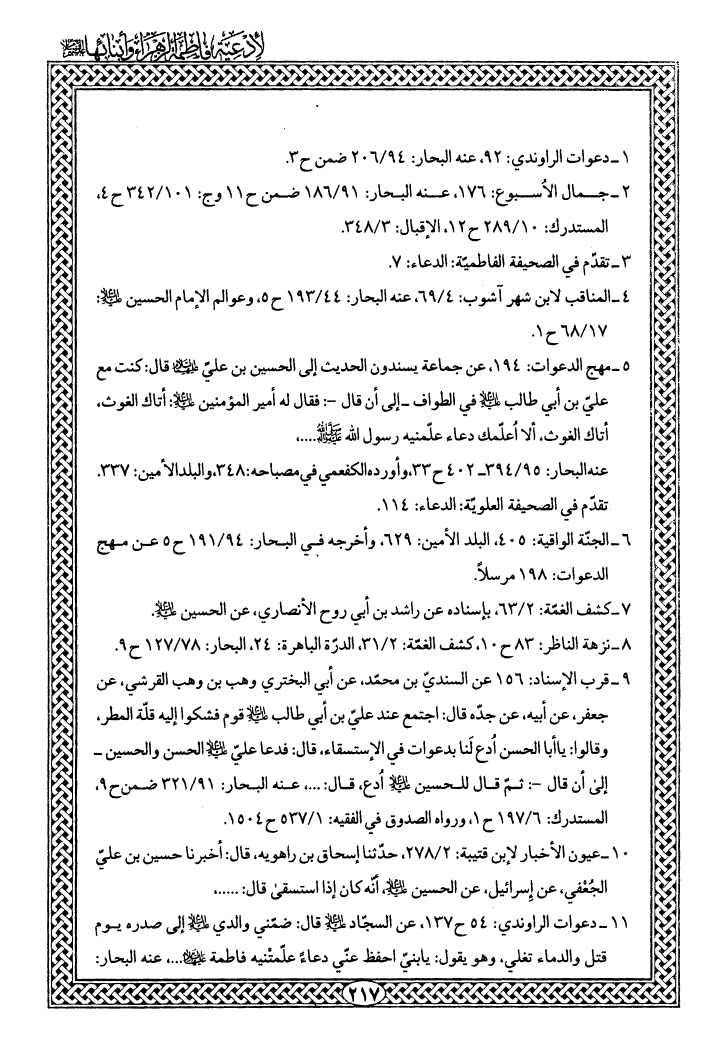 لأدعية فاطمة الزهراء وأبنائها ﷺ
١ ـ دعوات الراوندي: ٩٢، عنه البحار: ٢٠٦/٩٤ ضمن ح٣.
٢ ـ جـمال الأسـبوع: ١٧٦، عـنه البـحار: ١٨٦/٩١ ضـمن ح١١ وج: ٣٤٢/١٠١ ح٤،
المستدرك: ٢٨٩/١٠ ح١٢، الإقبال: ٣٤٨/٣.
٣ ـ تقدّم في الصحيفة الفاطميّة: الدعاء: ٧.
٤ ـ المناقب لابن شهر آشوب: ٦٩/٤، عنه البحار: ١٩٣/٤٤ ح٥، وعوالم الإمام الحسين عليه السلام:
٦٨/١٧ ح١.
٥ ـ مهج الدعوات: ١٩٤، عن جماعة يسندون الحديث إلى الحسين بن عليّ عليهما السلام قال: كنت مع
عليّ بن أبي طالب عليه السلام في الطواف ـ إلى أن قال ـ: فقال له أمير المؤمنين عليه السلام: أتاك الغوث،
أتاك الغوث، ألا اُعلّمك دعاء علّمنيه رسول الله ﷺ....،
عنه البحار: ٣٩٤/٩٥ ـ ٤٠٢ ح٣٣، وأورده الكفعمي في مصباحه: ٣٤٨، والبلد الأمين: ٣٣٧.
تقدّم في الصحيفة العلويّة: الدعاء: ١١٤.
٦ ـ الجنّة الواقية: ٤٠٥، البلد الأمين: ٦٢٩، وأخرجه فـي البـحار: ١٩١/٩٤ ح٥ عـن مـهج
الدعوات: ١٩٨ مرسلاً.
٧ ـ كشف الغمّة: ٦٣/٢، بإسناده عن راشد بن أبي روح الأنصاري، عن الحسين عليه السلام.
٨ ـ نزهة الناظر: ٨٣ ح١٠، كشف الغمّة: ٣١/٢، الدرّة الباهرة: ٢٤، البحار: ١٢٧/٧٨ ح٩.
٩ ـ قرب الإسناد: ١٥٦ عن السنديّ بن محمّد، عن أبي البختري وهب بن وهب القرشي، عن
جعفر، عن أبيه، عن جدّه قال: اجتمع عند عليّ بن أبي طالب عليه السلام قوم فشكوا إليه قلّة المطر،
وقالوا: ياأبا الحسن اُدع لَنا بدعوات في الإستسقاء، قال: فدعا عليّ عليه السلام الحسن والحسين ـ
إلىٰ أن قال ـ: ثـمّ قـال للـحسين عليه السلام اُدع، قـال: ....، عـنه البـحار: ٣٢١/٩١ ضـمن ح٩،
المستدرك: ١٩٧/٦ ح١، ورواه الصدوق في الفقيه: ٥٣٧/١ ح١٥٠٤.
١٠ ـ عيون الأخبار لإبن قتيبة: ٢٧٨/٢، حدّثنا إسحاق بن راهويه، قال: أخبرنا حسين بن عليّ
الجُعْفي، عن إسرائيل، عن الحسين عليه السلام، أنّه كان إذا استسقىٰ قال: .....،
١١ ـ دعوات الراوندي: ٥٤ ح١٣٧، عن السجّاد عليه السلام قال: ضمّني والدي عليه السلام إلى صدره يـوم
قتل والدماء تغلي، وهو يقول: يابنيّ احفظ عنّي دعاءً علّمتْنيه فاطمة عليها السلام ....، عنه البحار:
٢١٧